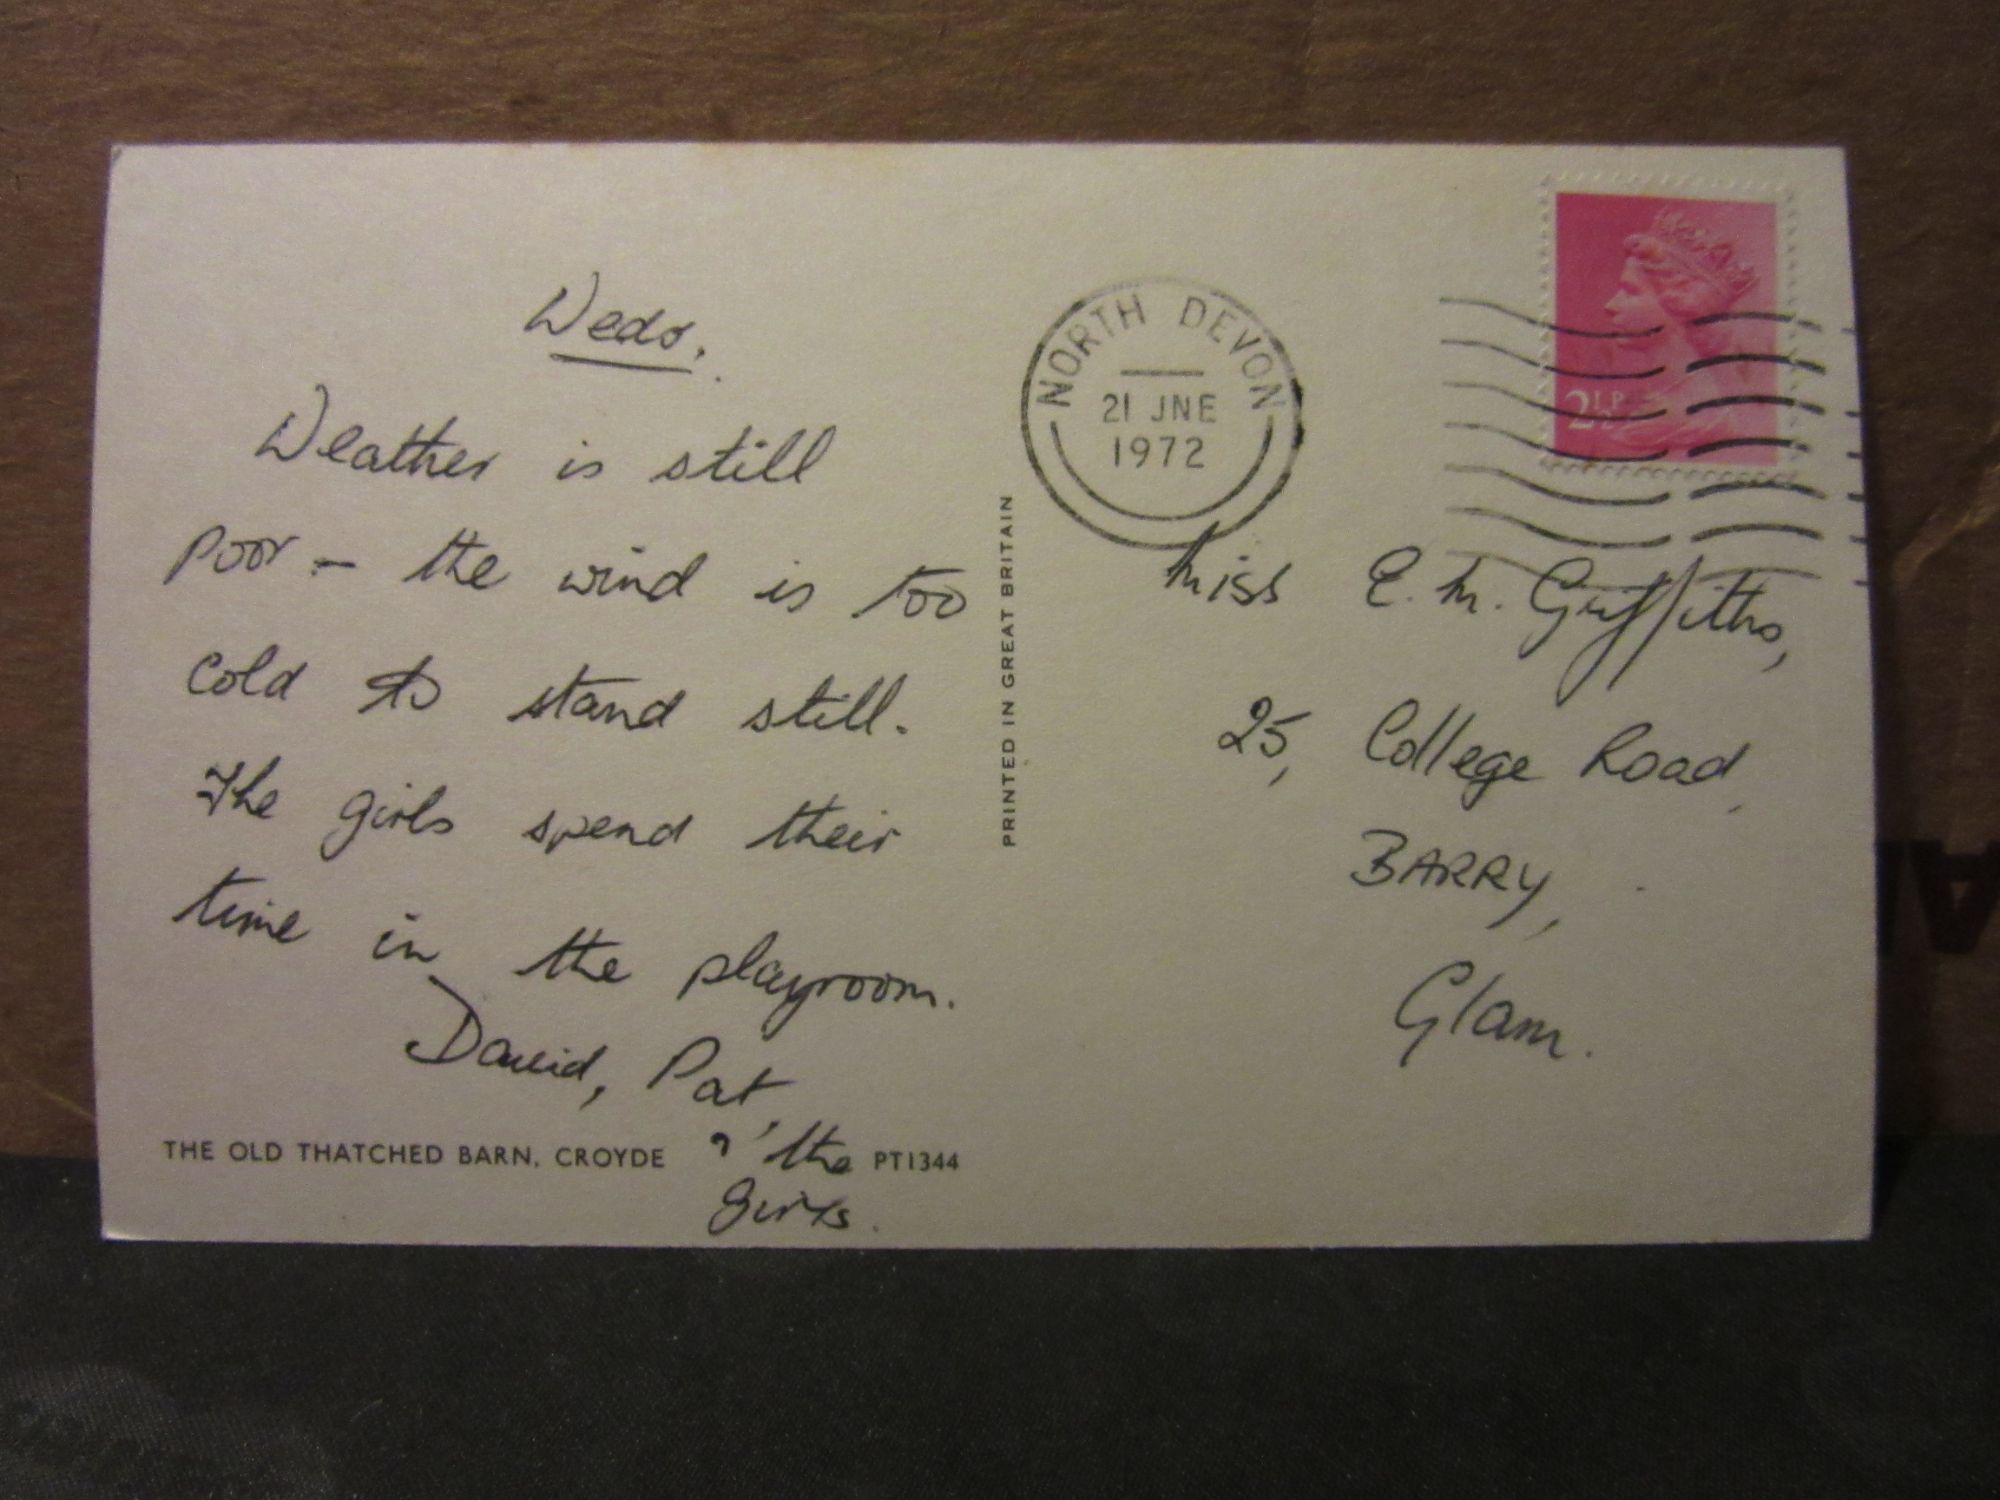 Weds.
Weather is still
poor – the wind is too
cold to stand still.
The girls spend their
time in the playroom.
David, Pat,
& the
girls.
THE OLD THATCHED BARN, CROYDE
PT1344
PRINTED IN GREAT BRITAIN
NORTH DEVON
21 JNE
1972
2½P
Miss E. M. Griffiths,
25, College Road,
BARRY,
Glam.